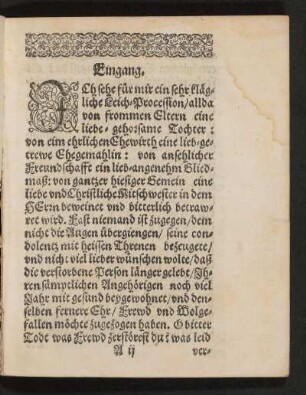 Eingang.
ICh sehe für mir ein sehr kläg-
liche Leich-Procession/allda
von frommen Eltern eine
liebe-gehorsame Tochter:
von eim ehrlichen Ehewirth eine lieb-ge-
trewe Ehegemahlin: von ansehlicher
Freundschafft ein lieb-angenehm Glied-
maß: von gantzer hiesiger Gemein eine
liebe vnd Christliche Mitschwester in dem
HErrn beweinet vnd bitterlich betraw-
ret wird. Fast niemand ist zugegen/dem
nicht die Augen übergiengen/ seine con-
dolentz mit heissen Threnen bezeugete/
vnd nicht viel lieber wünschen wolte/daß
die verstorbene Person länger gelebt/Jh-
ren sämptlichen Angehörigen noch viel
Jahr mit gesund beygewohnet/vnd den-
selben fernere Ehr/ Frewd vnd Wolge-
fallen möchte zugezogen haben. O bitter
Todt was Frewd zerstörest du? was leid
A ij
ver-